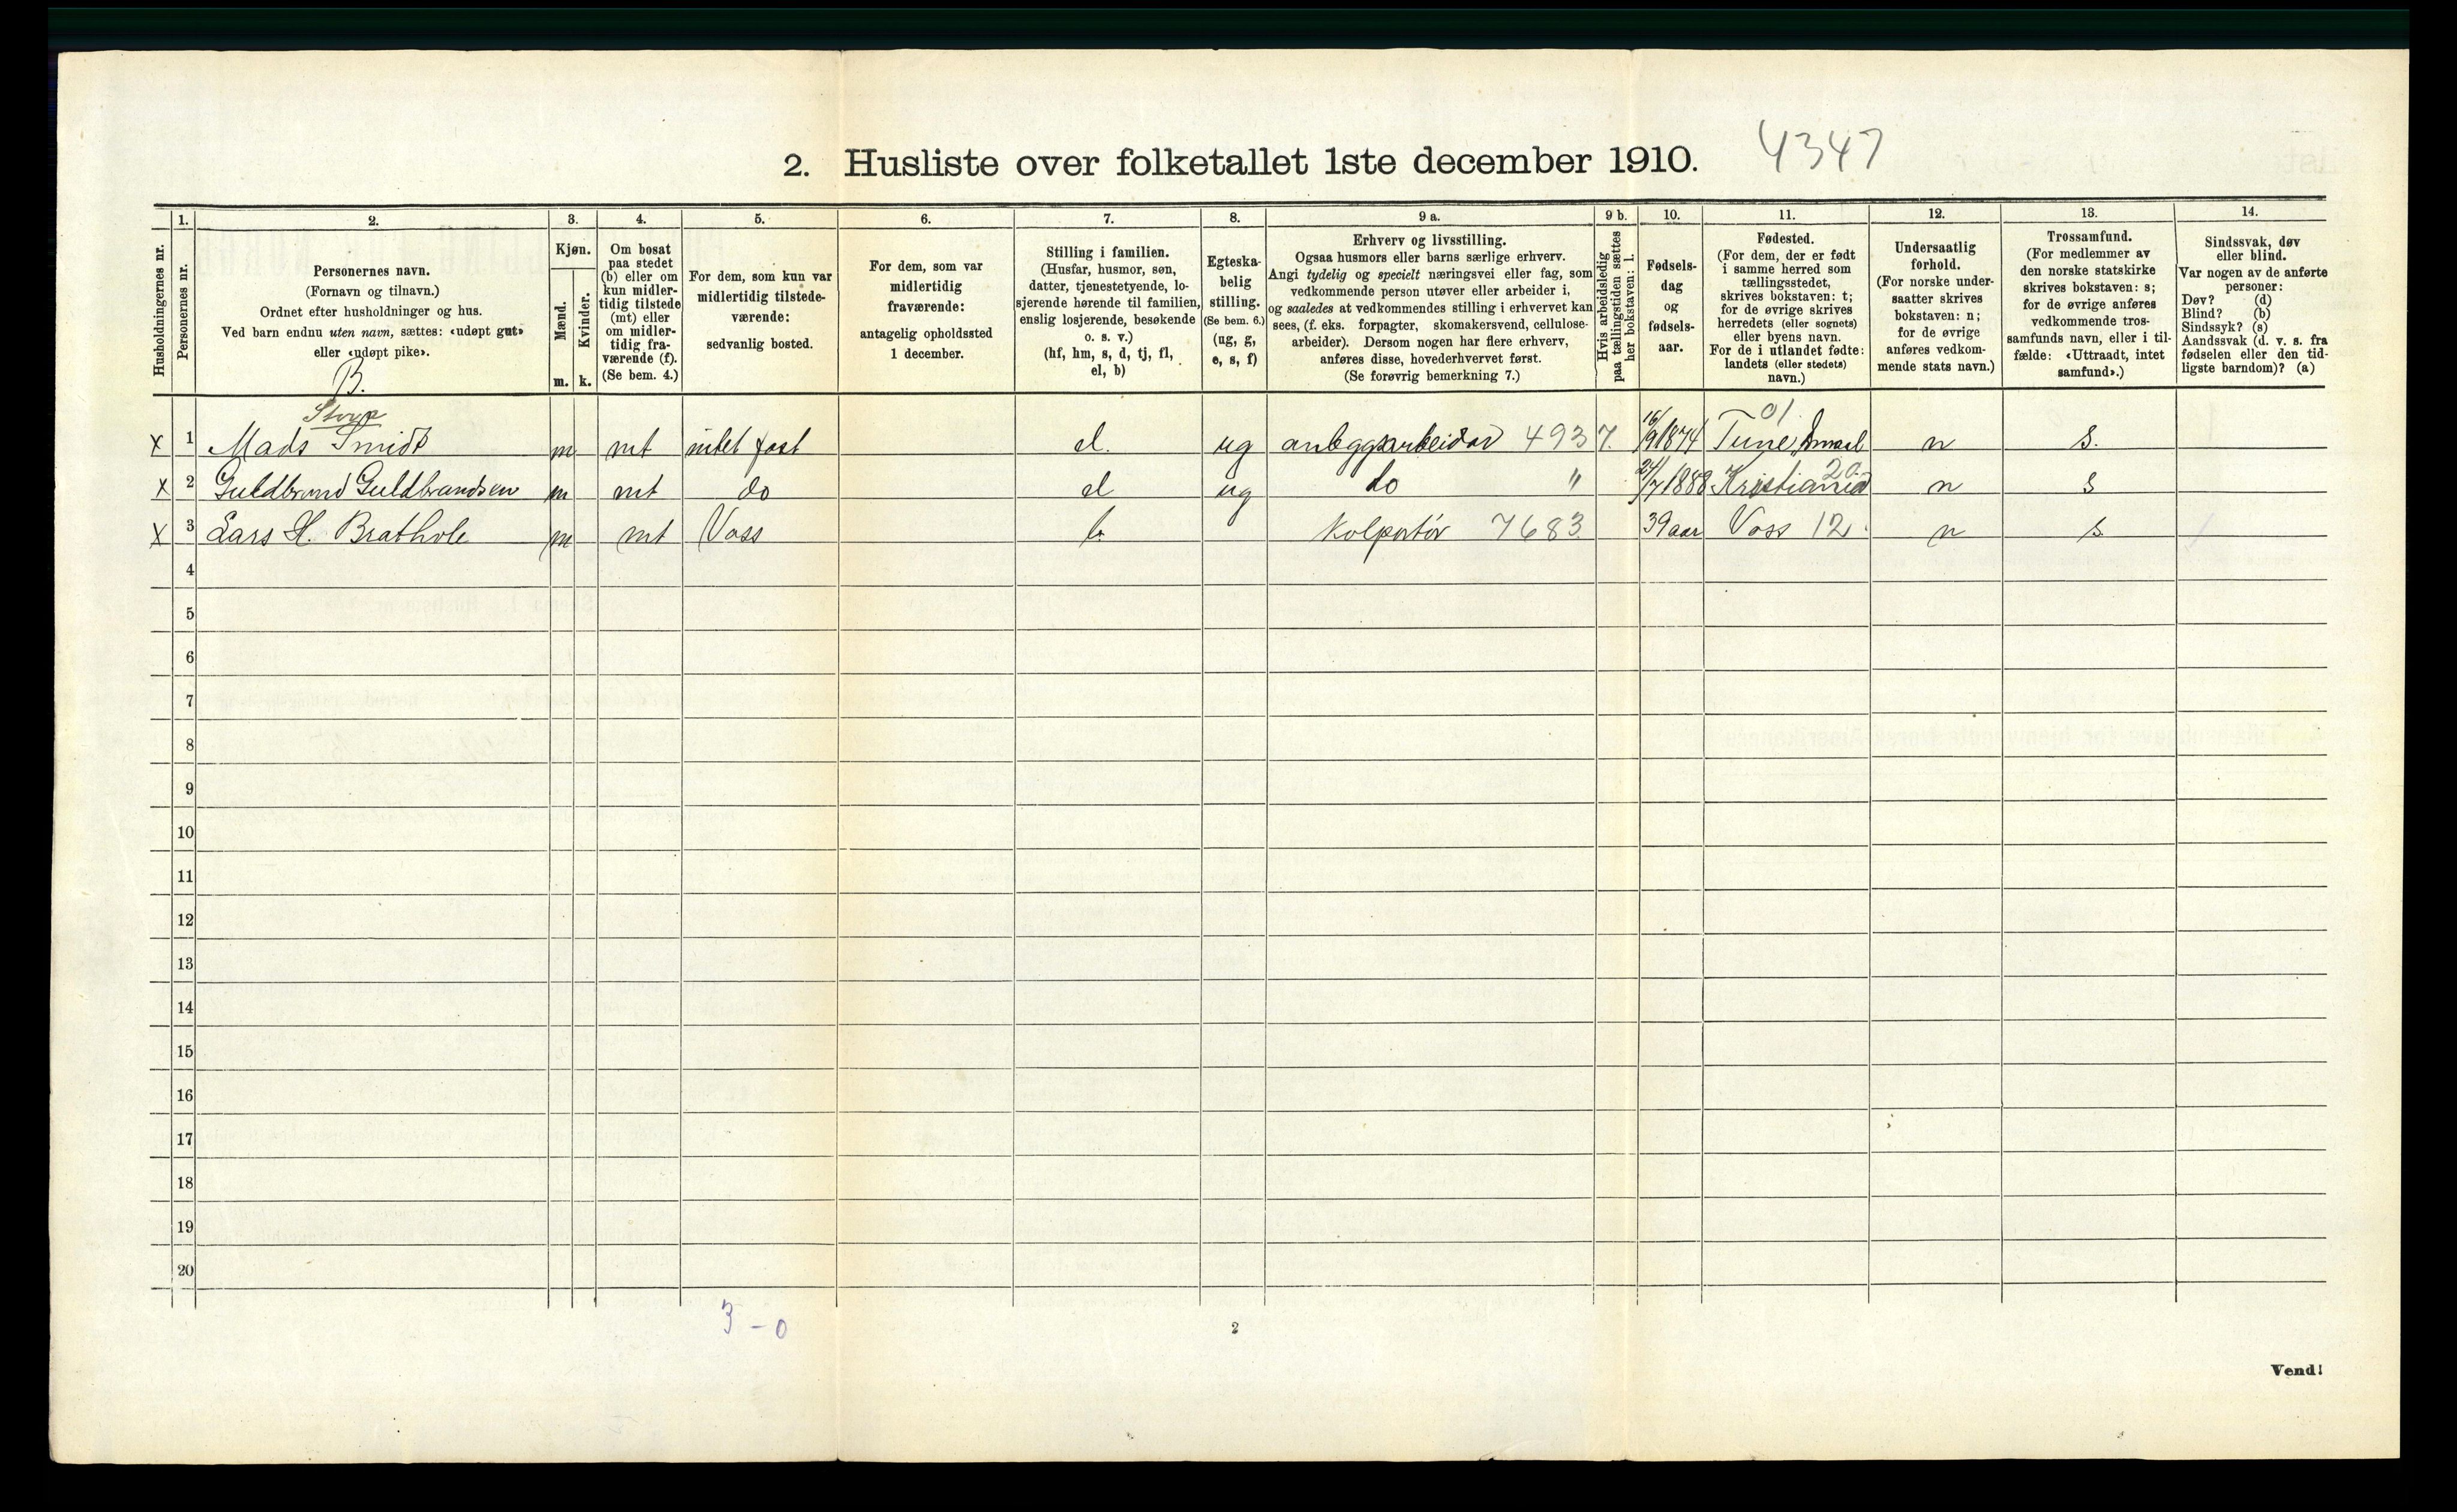 2. Husliste over folketallet 1ste december 1910. 4347
1. 2. 3. 4. 5. 6. 7. 8. 9 a. 9 b. 10. 11. 12. 13. 14.
Husholdningernes nr.
Personernes nr.
Personernes navn.
(Fornavn og tilnavn.)
Ordnet efter husholdninger og hus.
Ved barn endnu uten navn, sættes: «udøpt gut»
eller «udøpt pike».
B.
Kjøn.
Mænd.
Kvinder.
m. k.
Om bosat
paa stedet
(b) eller om
kun midler-
tidig tilstede
(mt) eller
om midler-
tidig fra-
værende (f).
(Se bem. 4.)
For dem, som kun var
midlertidig tilstede-
værende:
sedvanlig bosted.
For dem, som var
midlertidig
fraværende:
antagelig opholdssted
1 december.
Stilling i familien.
(Husfar, husmor, søn,
datter, tjenestetyende, lo-
sjerende hørende til familien,
enslig losjerende, besøkende
o. s. v.)
(hf, hm, s, d, tj, fl,
el, b)
Egteska-
belig
stilling.
(Se bem. 6.)
(ug, g,
e, s, f)
Erhverv og livsstilling.
Ogsaa husmors eller barns særlige erhverv.
Angi tydelig og specielt næringsvei eller fag, som
vedkommende person utøver eller arbeider i,
og saaledes at vedkommendes stilling i erhvervet kan
sees, (f. eks. forpagter, skomakersvend, cellulose-
arbeider). Dersom nogen har flere erhverv,
anføres disse, hovederhvervet først.
(Se forøvrig bemerkning 7.)
Hvis arbeidsledig
paa tællingstiden sættes
her bokstaven: l.
Fødsels-
dag
og
fødsels-
aar.
Fødested.
(For dem, der er født
i samme herred som
tællingsstedet,
skrives bokstaven: t;
for de øvrige skrives
herredets (eller sognets)
eller byens navn.
For de i utlandet fødte:
landets (eller stedets)
navn.)
Undersaatlig
forhold.
(For norske under-
saatter skrives
bokstaven: n;
for de øvrige
anføres vedkom-
mende stats navn.)
Trossamfund.
(For medlemmer av
den norske statskirke
skrives bokstaven: s;
for de øvrige anføres
vedkommende tros-
samfunds navn, eller i til-
fælde: «Uttraadt, intet
samfund».)
Sindssvak, døv
eller blind.
Var nogen av de anførte
personer:
Døv? (d)
Blind? (b)
Sindssyk? (s)
Aandssvak (d. v. s. fra
fødselen eller den tid-
ligste barndom)? (a)
01
x 1 Mads Smidt m mt intet fast el. ug anlegsarbeider 4937. 16/9 1874 Tune, n s.
20
x 2 Guldbrand Guldbrandsen m mt do el ug do " 24/7 1888 Kristiania n s
x 3 Lars H. Brathole m mt Voss b. Kolportør 7683. 39 aar Voss 12. n s.
4
5
6
7
8
9
10
11
12
13
14
15
16
17
18
19
20
3 - 0
2
Vend!